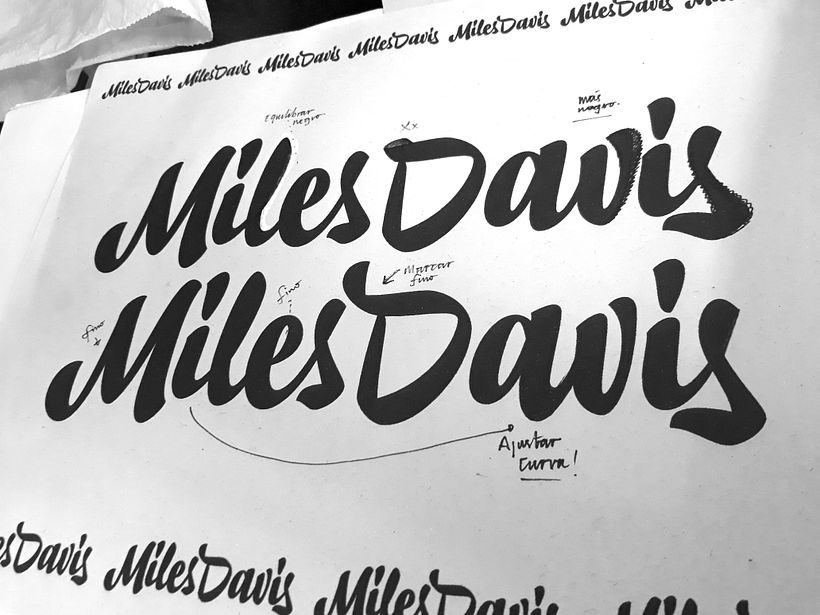 MilesDavis MilesDavis MilesDavis MilesDavis MilesDavis MilesDavis
Equilibrar
negro
Xx
más
negro.
MilesDavis
Marcar
fino
fino
fino
MilesDavis
Ajustar
curva!
esDavis MilesDavis MilesDavis